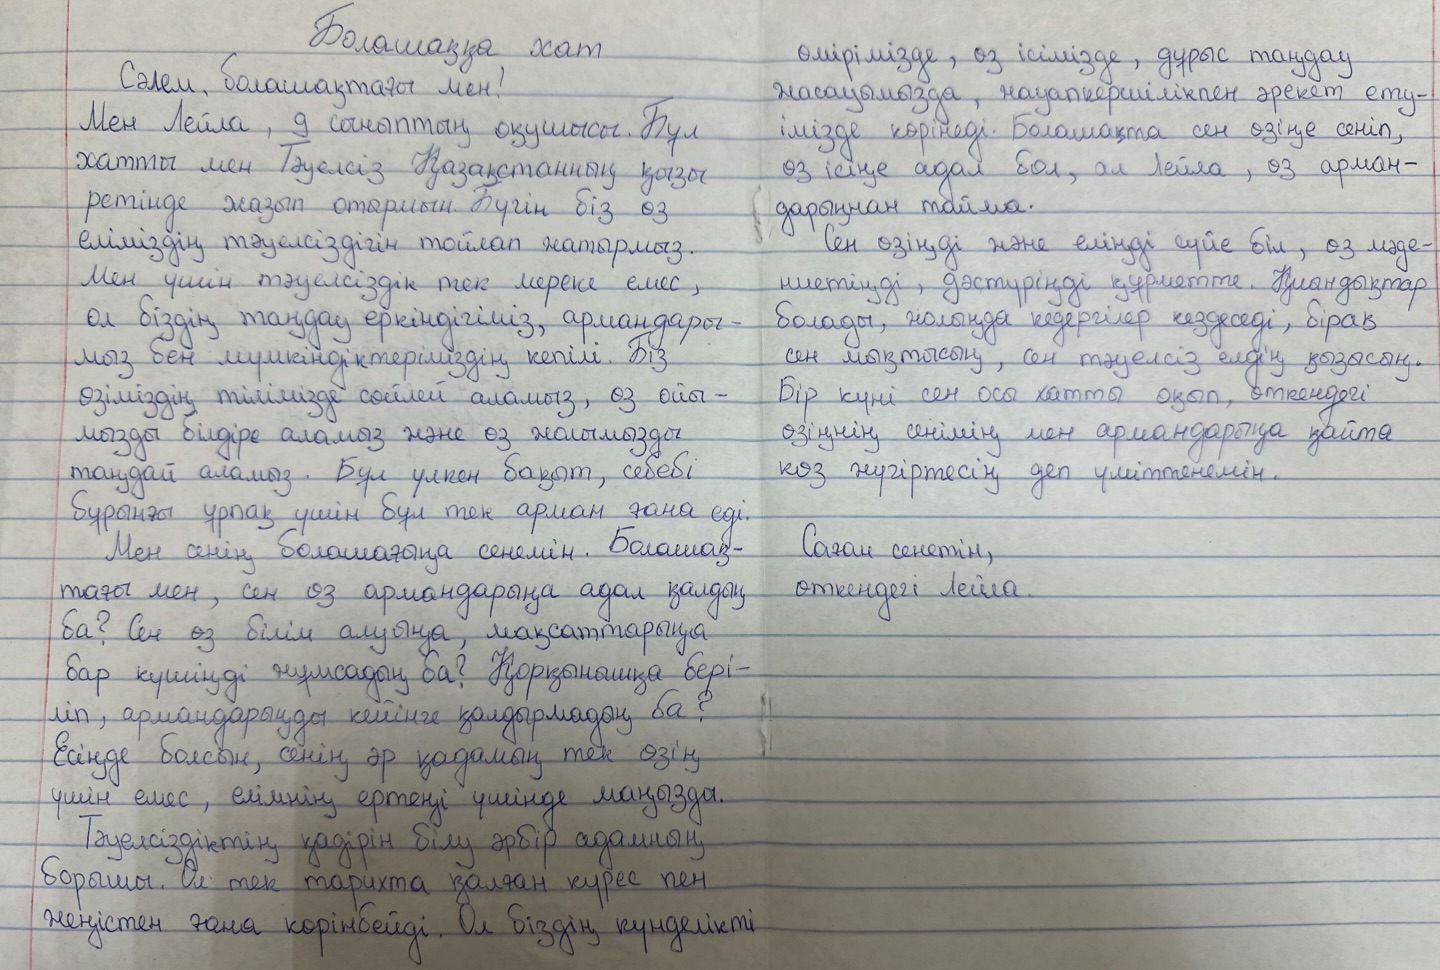 Болашаққа хат
Сәлем, болашақтағы мен!
Мен Лейла, 9 сыныптың оқушысы. Бұл
хатты мен Тәуелсіз Қазақстанның қызы
ретінде жазып отырмын. Бүгін біз өз
еліміздің тәуелсіздігін тойлап жатырмыз.
Мен үшін тәуелсіздік тек мереке емес,
ол біздің таңдау еркіндігіміз, армандары-
мыз бен мүмкіндіктеріміздің кепілі. Біз
өзіміздің тілімізде сөйлей аламыз, өз ойы-
мызды білдіре аламыз және өз жолымызды
таңдай аламыз. Бұл үлкен бақыт, себебі
бұрынғы ұрпақ үшін бұл тек арман ғана еді.
Мен сенің болашағыңа сенемін. Болашақ-
тағы мен, сен өз армандарыңа адал қалдың
ба? Сен өз білім алуыңа, мақсаттарыңа
бар күшіңді жұмсадың ба? Қорқынышқа бері-
ліп, армандарыңды кейінге қалдырмадың ба?
Есіңде болсын, сенің әр қадамың тек өзің
үшін емес, елімнің ертеңі үшінде маңызды.
Тәуелсіздіктің қадірін білу әрбір адамның
борышы. Ол тек тарихта қалған күрес пен
жеңістен ғана көрінбейді. Ол біздің күнделікті
өмірімізде, өз ісімізде, дұрыс таңдау
жасауымызда, жауапкершілікпен әрекет ету-
імізде көрінеді. Болашақта сен өзіңе сеніп,
өз ісіңе адал бол, ал Лейла, өз арман-
дарыңнан тайма.
Сен өзіңді және еліңді сүйе біл, өз мәде-
ниетіңді, дәстүріңді құрметте. Қиындықтар
болады, жолыңда кедергілер кездеседі, бірақ
сен мықтысың, сен тәуелсіз елдің қызысың.
Бір күні сен осы хатты оқып, өткендегі
өзіңнің сенімің мен армандарыңа қайта
көз жүгіртесің деп үміттенемін.
Саған сенетін,
өткендегі Лейла.